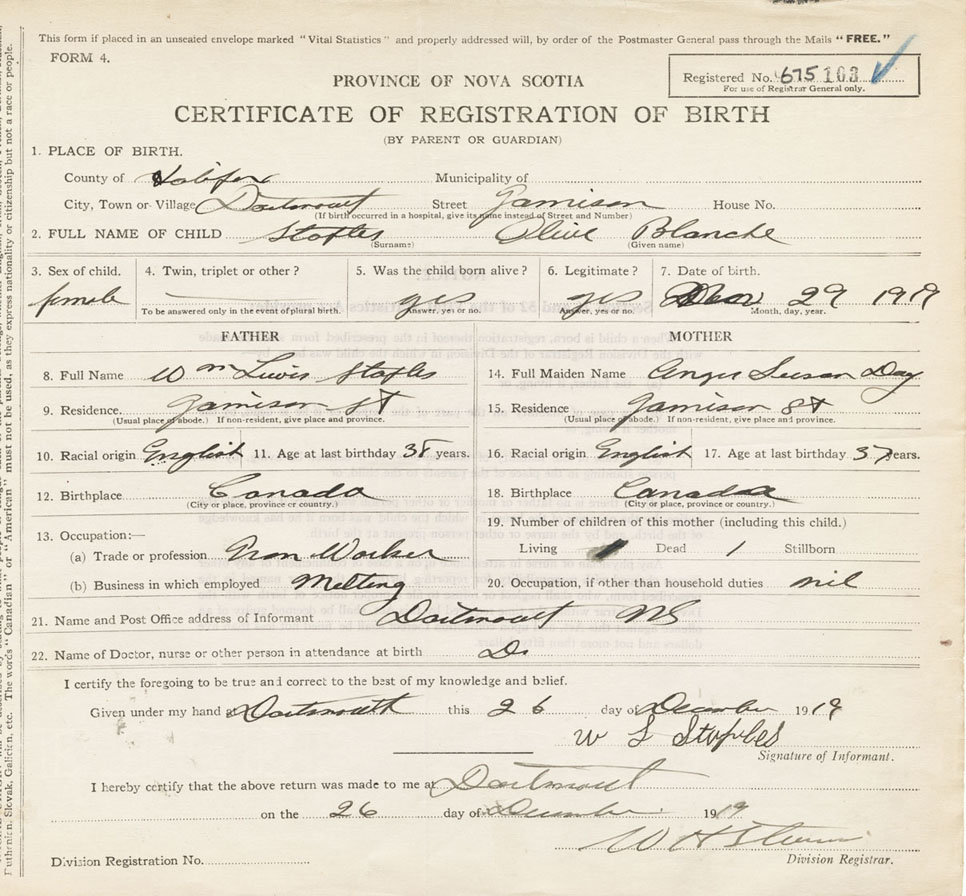 This form if placed in an unsealed envelope marked "Vital Statistics" and properly addressed will, by order of the Postmaster General pass through the Mails "FREE."
FORM 4.
Registered No. 675103
For use of Registrar General only.
PROVINCE OF NOVA SCOTIA
CERTIFICATE OF REGISTRATION OF BIRTH
(BY PARENT OR GUARDIAN)
1. PLACE OF BIRTH.
County of Halifax Municipality of
City, Town or Village Dartmouth Street Jamison House No.
(If birth occurred in a hospital, give its name instead of Street and Number)
2. FULL NAME OF CHILD Staples Olive Blanche
(Surname) (Given name)
3. Sex of child. 4. Twin, triplet or other? 5. Was the child born alive? 6. Legitimate? 7. Date of birth.
female yes yes Nov 29 1919
To be answered only in the event of plural birth. Answer, yes or no. Answer, yes or no. Month, day, year.
FATHER MOTHER
8. Full Name Wm Lewis Staples 14. Full Maiden Name Susan Day
9. Residence. Jamison St 15. Residence Jamison St
(Usual place of abode.) If non-resident, give place and province. (Usual place of abode.) If non-resident, give place and province.
10. Racial origin English 11. Age at last birthday 38 years. 16. Racial origin English 17. Age at last birthday 37 years.
12. Birthplace Canada 18. Birthplace Canada
(City or place, province or country.) (City or place, province or country.)
13. Occupation:— 19. Number of children of this mother (including this child.)
(a) Trade or profession Iron Worker Living Dead 1 Stillborn
(b) Business in which employed Melting 20. Occupation, if other than household duties nil
21. Name and Post Office address of Informant Dartmouth NS
22. Name of Doctor, nurse or other person in attendance at birth Dr
I certify the foregoing to be true and correct to the best of my knowledge and belief.
Given under my hand at Dartmouth this 26 day of December 1919
W L Staples
Signature of Informant.
I hereby certify that the above return was made to me at Dartmouth
on the 26 day of December 1919
W H
Division Registration No. Division Registrar.